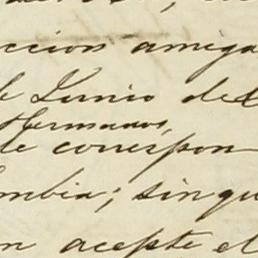 ccion amiga
de Junio del
Hermanos,
de correspon
ombia; sin qu
n acepte el